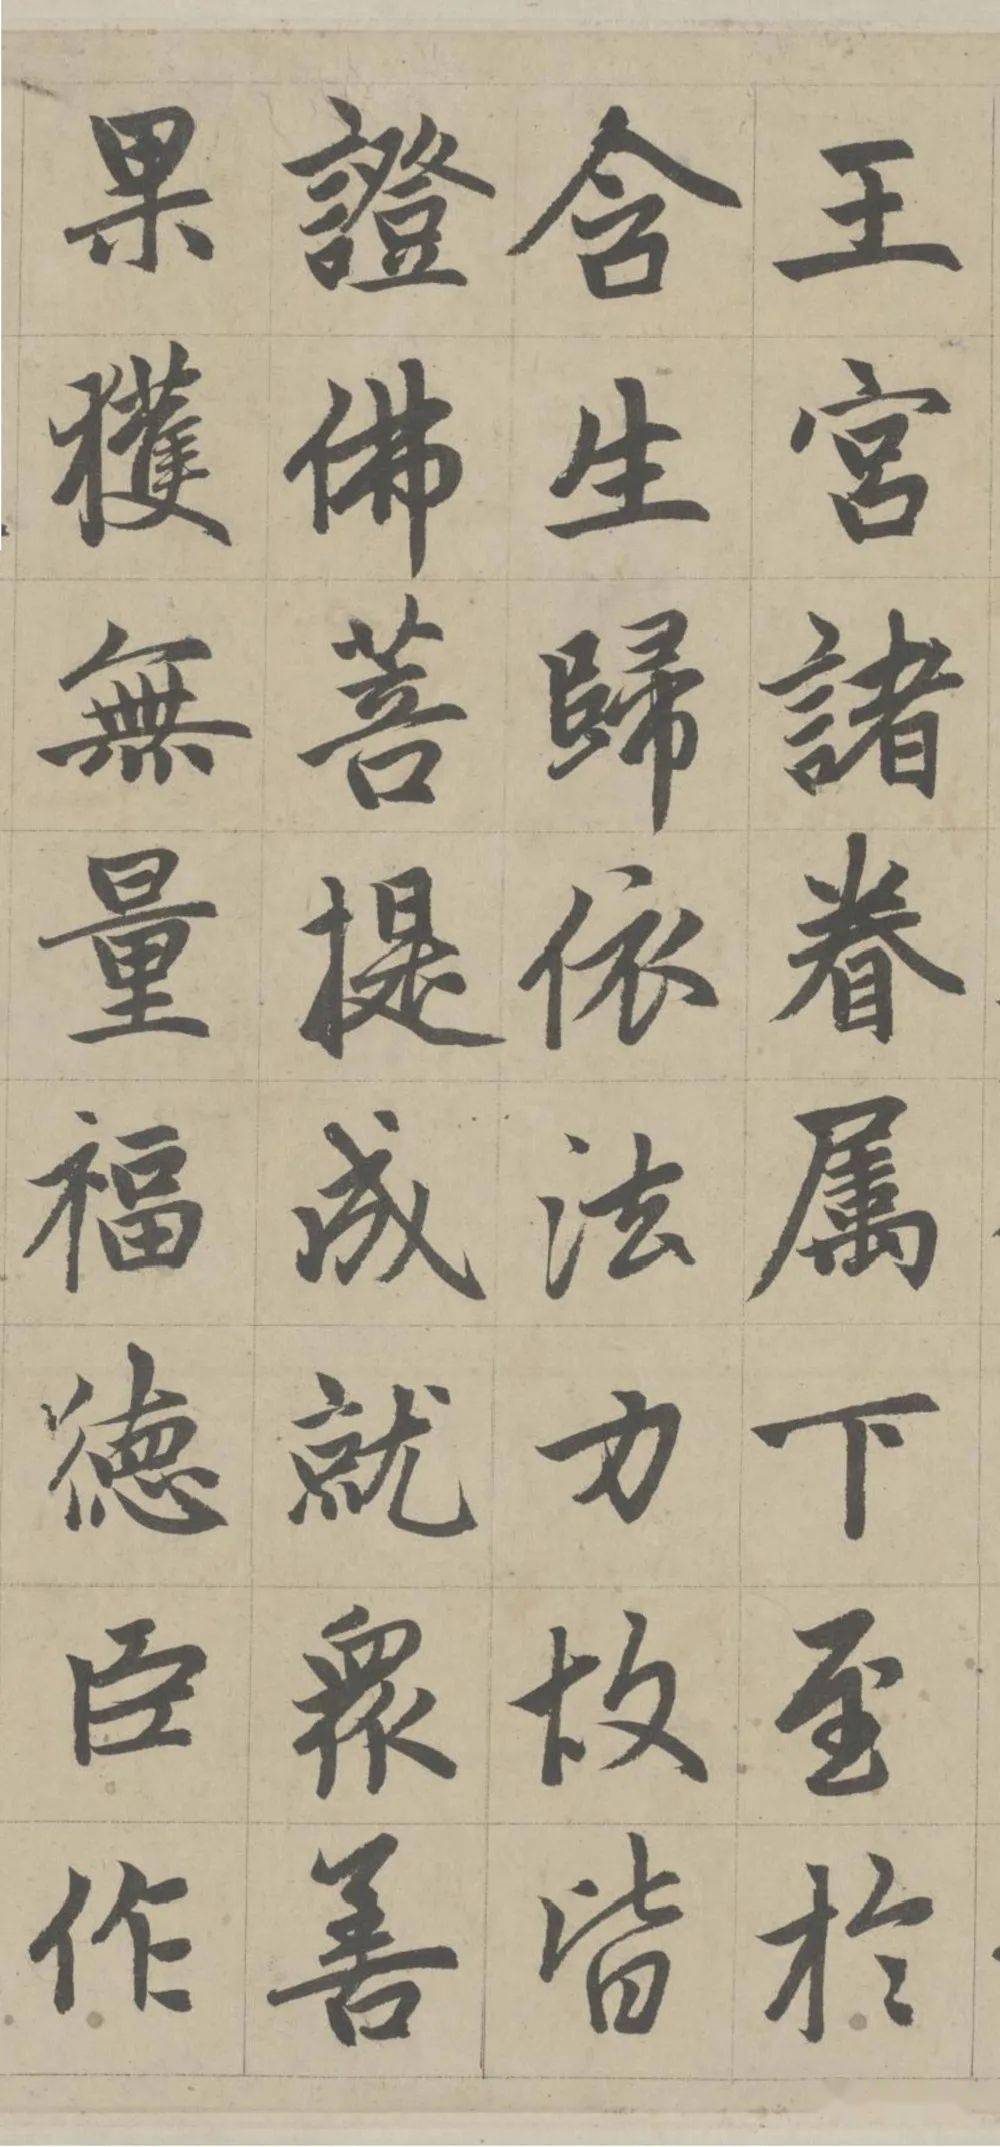 王宮諸眷屬下至於
含生歸依法力故皆
證佛菩提成就眾善
果獲無量福德臣作